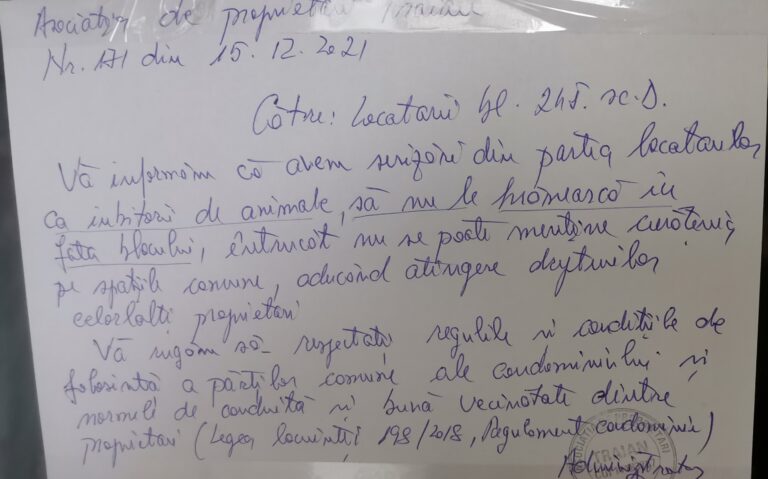 Asociația de proprietari Traian
Nr. 171 din 15.12.2021
Către: Locatarii bl. 245. sc. D.
Vă informăm că avem sesizări din partea locatarilor
ca iubitorii de animale, să nu le hrănească în
fața blocului, întrucât nu se poate menține curățenia
pe spațiile comune, aducând atingere drepturilor
celorlalți proprietari
Vă rugăm să respectați regulile și condițiile de
folosință a părților comune ale condominiului și
normele de conduită și bună vecinătate dintre
proprietari (Legea locuinței 198/2018, Regulament condominiu)
Administrator
TRAIAN